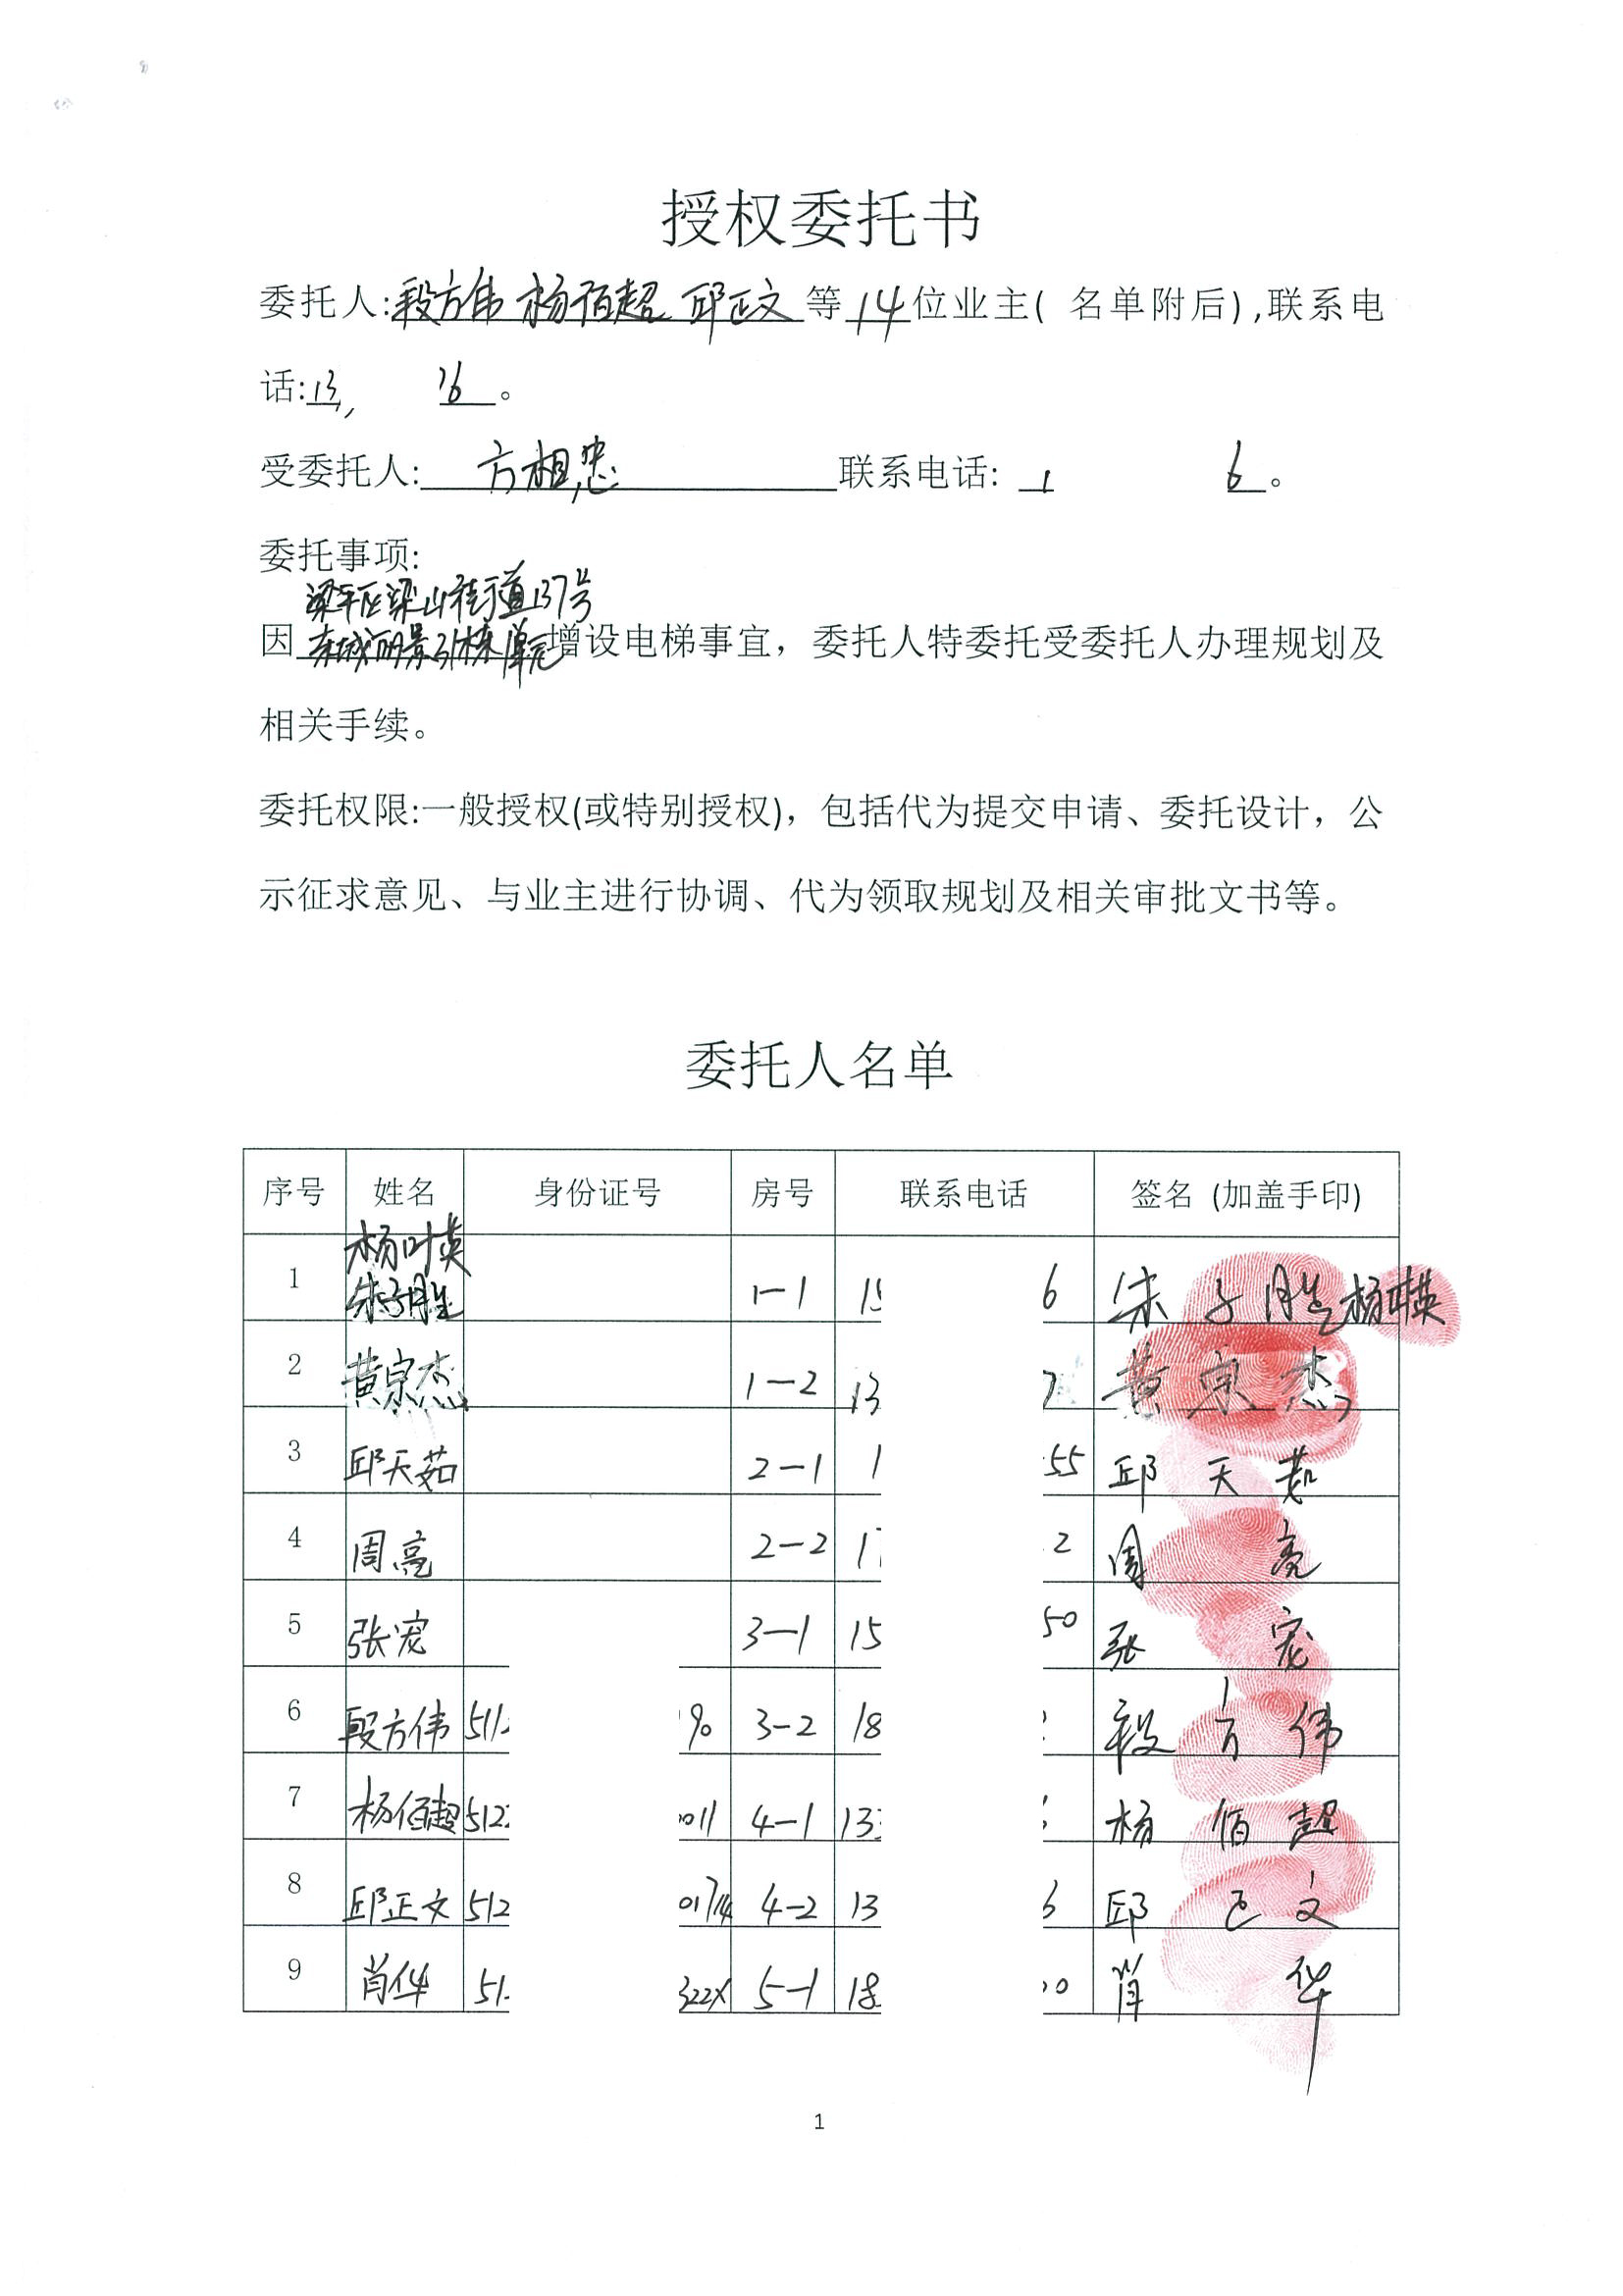 授权委托书
委托人:段方伟 杨佰超 邱正文等14位业主( 名单附后),联系电
话:13 76。
受委托人: 方相忠 联系电话: 1 6。
委托事项:
梁平区梁山街道137号
因东城丽景31栋1单元增设电梯事宜，委托人特委托受委托人办理规划及
相关手续。
委托权限:一般授权(或特别授权)，包括代为提交申请、委托设计，公
示征求意见、与业主进行协调、代为领取规划及相关审批文书等。
委托人名单
序号 姓名 身份证号 房号 联系电话 签名 (加盖手印)
1 杨叶英 朱子胜 1-1 15 6 朱子胜 杨叶英
2 黄宗杰 1-2 13 7 黄宗杰
3 邱天茹 2-1 1 55 邱天茹
4 周亮 2-2 1 2 周亮
5 张宠 3-1 15 50 张宠
6 段方伟 511 90 3-2 18 段方伟
7 杨佰超 512 011 4-1 133 杨佰超
8 邱正文 512 01714 4-2 13 6 邱正文
9 肖华 51 322X 5-1 18 0 肖华
1